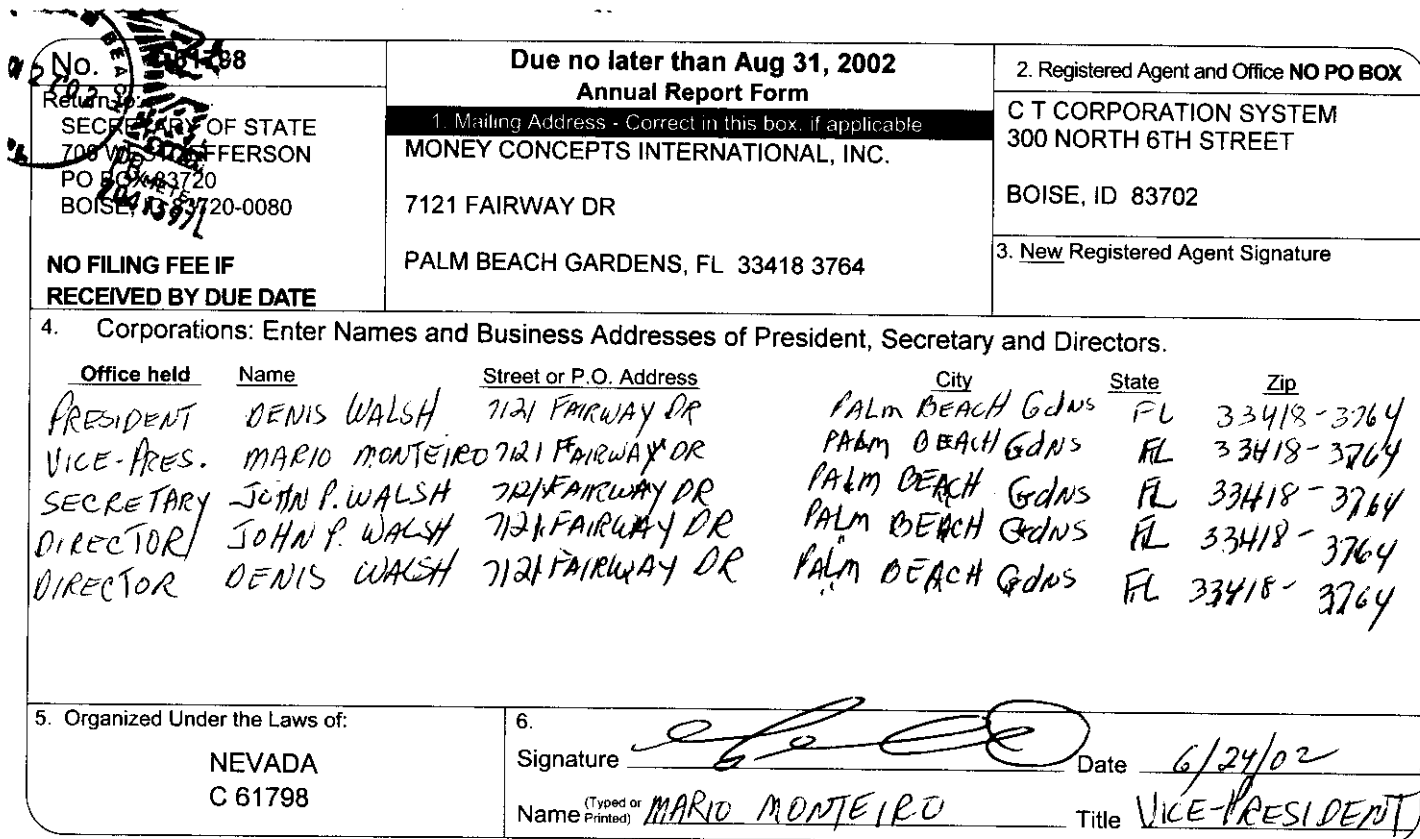 No.
Due no later than Aug 31, 2002
Annual Report Form
Return to:
SECRETARY OF STATE
JEFFERSON
PO BOX 83720
BOISE, ID 83720-0080
NO FILING FEE IF
RECEIVED BY DUE DATE
1. Mailing Address - Correct in this box, if applicable
MONEY CONCEPTS INTERNATIONAL, INC.
7121 FAIRWAY DR
PALM BEACH GARDENS, FL 33418 3764
2. Registered Agent and Office NO PO BOX
C T CORPORATION SYSTEM
300 NORTH 6TH STREET
BOISE, ID 83702
3. New Registered Agent Signature
4. Corporations: Enter Names and Business Addresses of President, Secretary and Directors.
Office held Name Street or P.O. Address City State Zip
PRESIDENT DENIS WALSH 7121 FAIRWAY DR PALM BEACH GdNS FL 33418-3764
VICE-PRES. MARIO MONTEIRO 7121 FAIRWAY DR PALM BEACH GdNS FL 33418-3764
SECRETARY JOHN P. WALSH 7121 FAIRWAY DR PALM BEACH GdNS FL 33418-3764
DIRECTOR/ JOHN P. WALSH 7121 FAIRWAY DR PALM BEACH GdNS FL 33418-3764
DIRECTOR DENIS WALSH 7121 FAIRWAY DR PALM BEACH GdNS FL 33418-3764
5. Organized Under the Laws of:
NEVADA
C 61798
6.
Signature Date 6/24/02
Name (Typed or Printed) MARIO MONTEIRO Title VICE-PRESIDENT